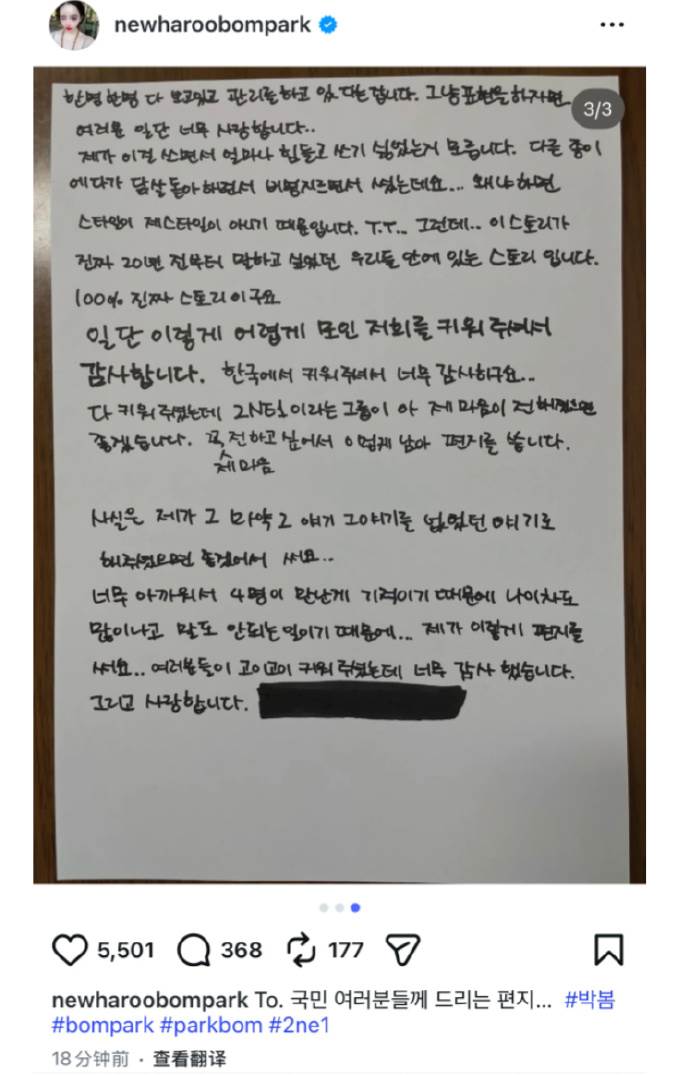 newharoobompark
3/3
한명한명 다 보고있고 관리를하고 있다는겁니다. 그냥표현을하자면
여러분 일단 너무 사랑합니다..
제가 이걸 쓰면서 얼마나 힘들고 쓰기 싫었는지 모릅니다. 다른 종이
에다가 닭살돋아하면서 비명지르면서 썼는데요... 왜냐하면
스타일이 제스타일이 아니기 때문입니다. T.T... 그런데.. 이스토리가
진짜 20년 전부터 말하고 싶었던 우리들 안에 있는 스토리 입니다.
100% 진짜 스토리이구요
일단 이렇게 어렵게 모인 저희를 키워주셔서
감사합니다. 한국에서 키워주셔서 너무 감사하구요..
다 키워주셨는데 2NE1이라는그룹이 아 제 마음이 전해졌으면
좋겠습니다. 꼭 전하고싶어서 편지를 씁니다.
제마음
사실은 제가 그 마약 그 얘기 그이야기를 없었던 얘기로
해주셨으면 좋겠어서 써요..
너무 아까워서 4명이 만난게 기적이기 때문에 나이차도
많이나고 말도 안되는일이기 때문에... 제가 이렇게 편지를
써요.. 여러분들이 고이고이 키워주셨는데 너무 감사 했습니다.
그리고 사랑합니다.
5,501 368 177
newharoobompark To. 국민 여러분들께 드리는 편지... #박봄
#bompark #parkbom #2ne1
18分钟前 · 查看翻译